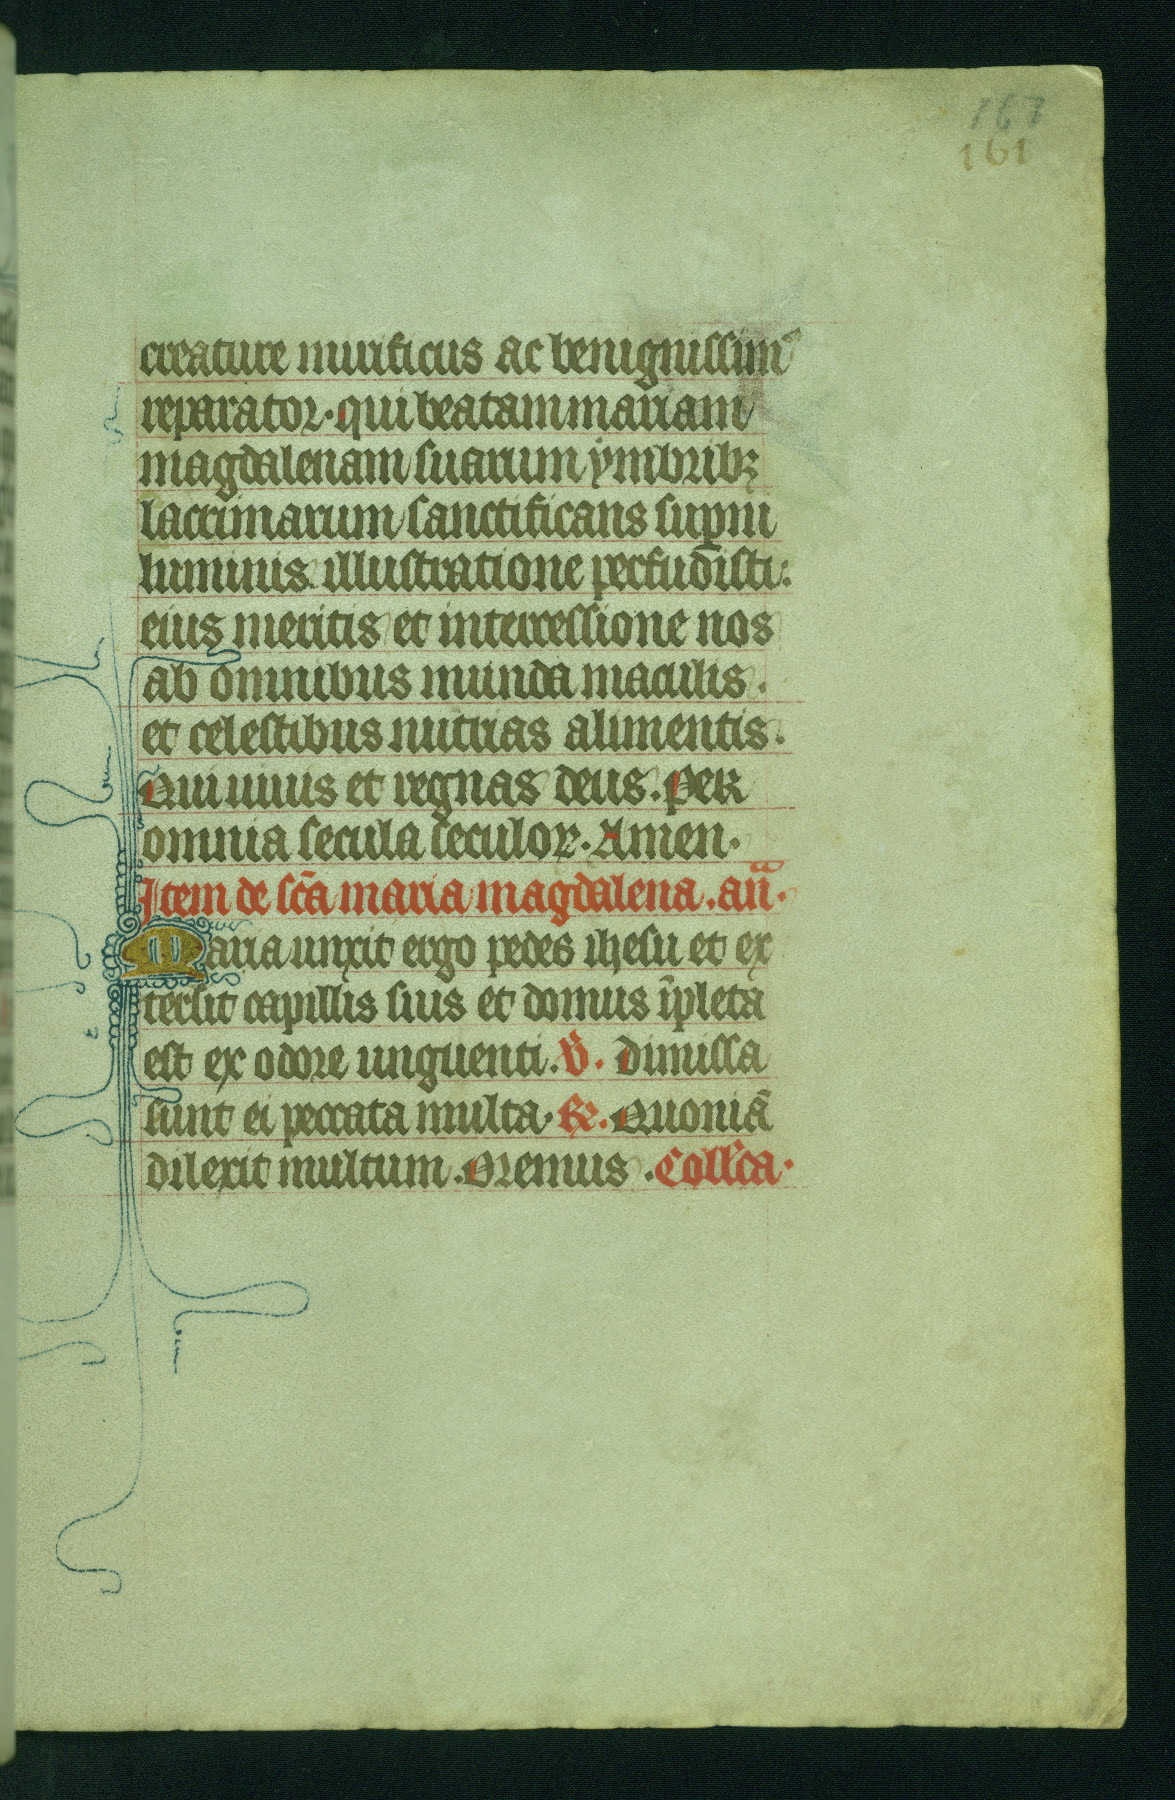 167
161
creature mirificus ac benignissim᷒
reparator. qui beatam mariam
magdalenam suarum ymbribꝫ
lacrimarum sanctificans sup̲ni
luminis illustratione perfudisti.
eius meritis et intercessione nos
ab omnibus munda maculis.
et celestibus nutrias alimentis.
Qui uiuis et regnas deus. Per
omnia secula seculoꝝ. Amen.
Item de sc̄a maria magdalena. añ.
Maria unxit ergo pedes ihesu et ex
tersit capillis suis et domus īpleta
est ex odore unguenti. ℣. Dimissa
sunt ei peccata multa. ℞. Quoniā
dilexit multum. Oremus. Coll'ca.